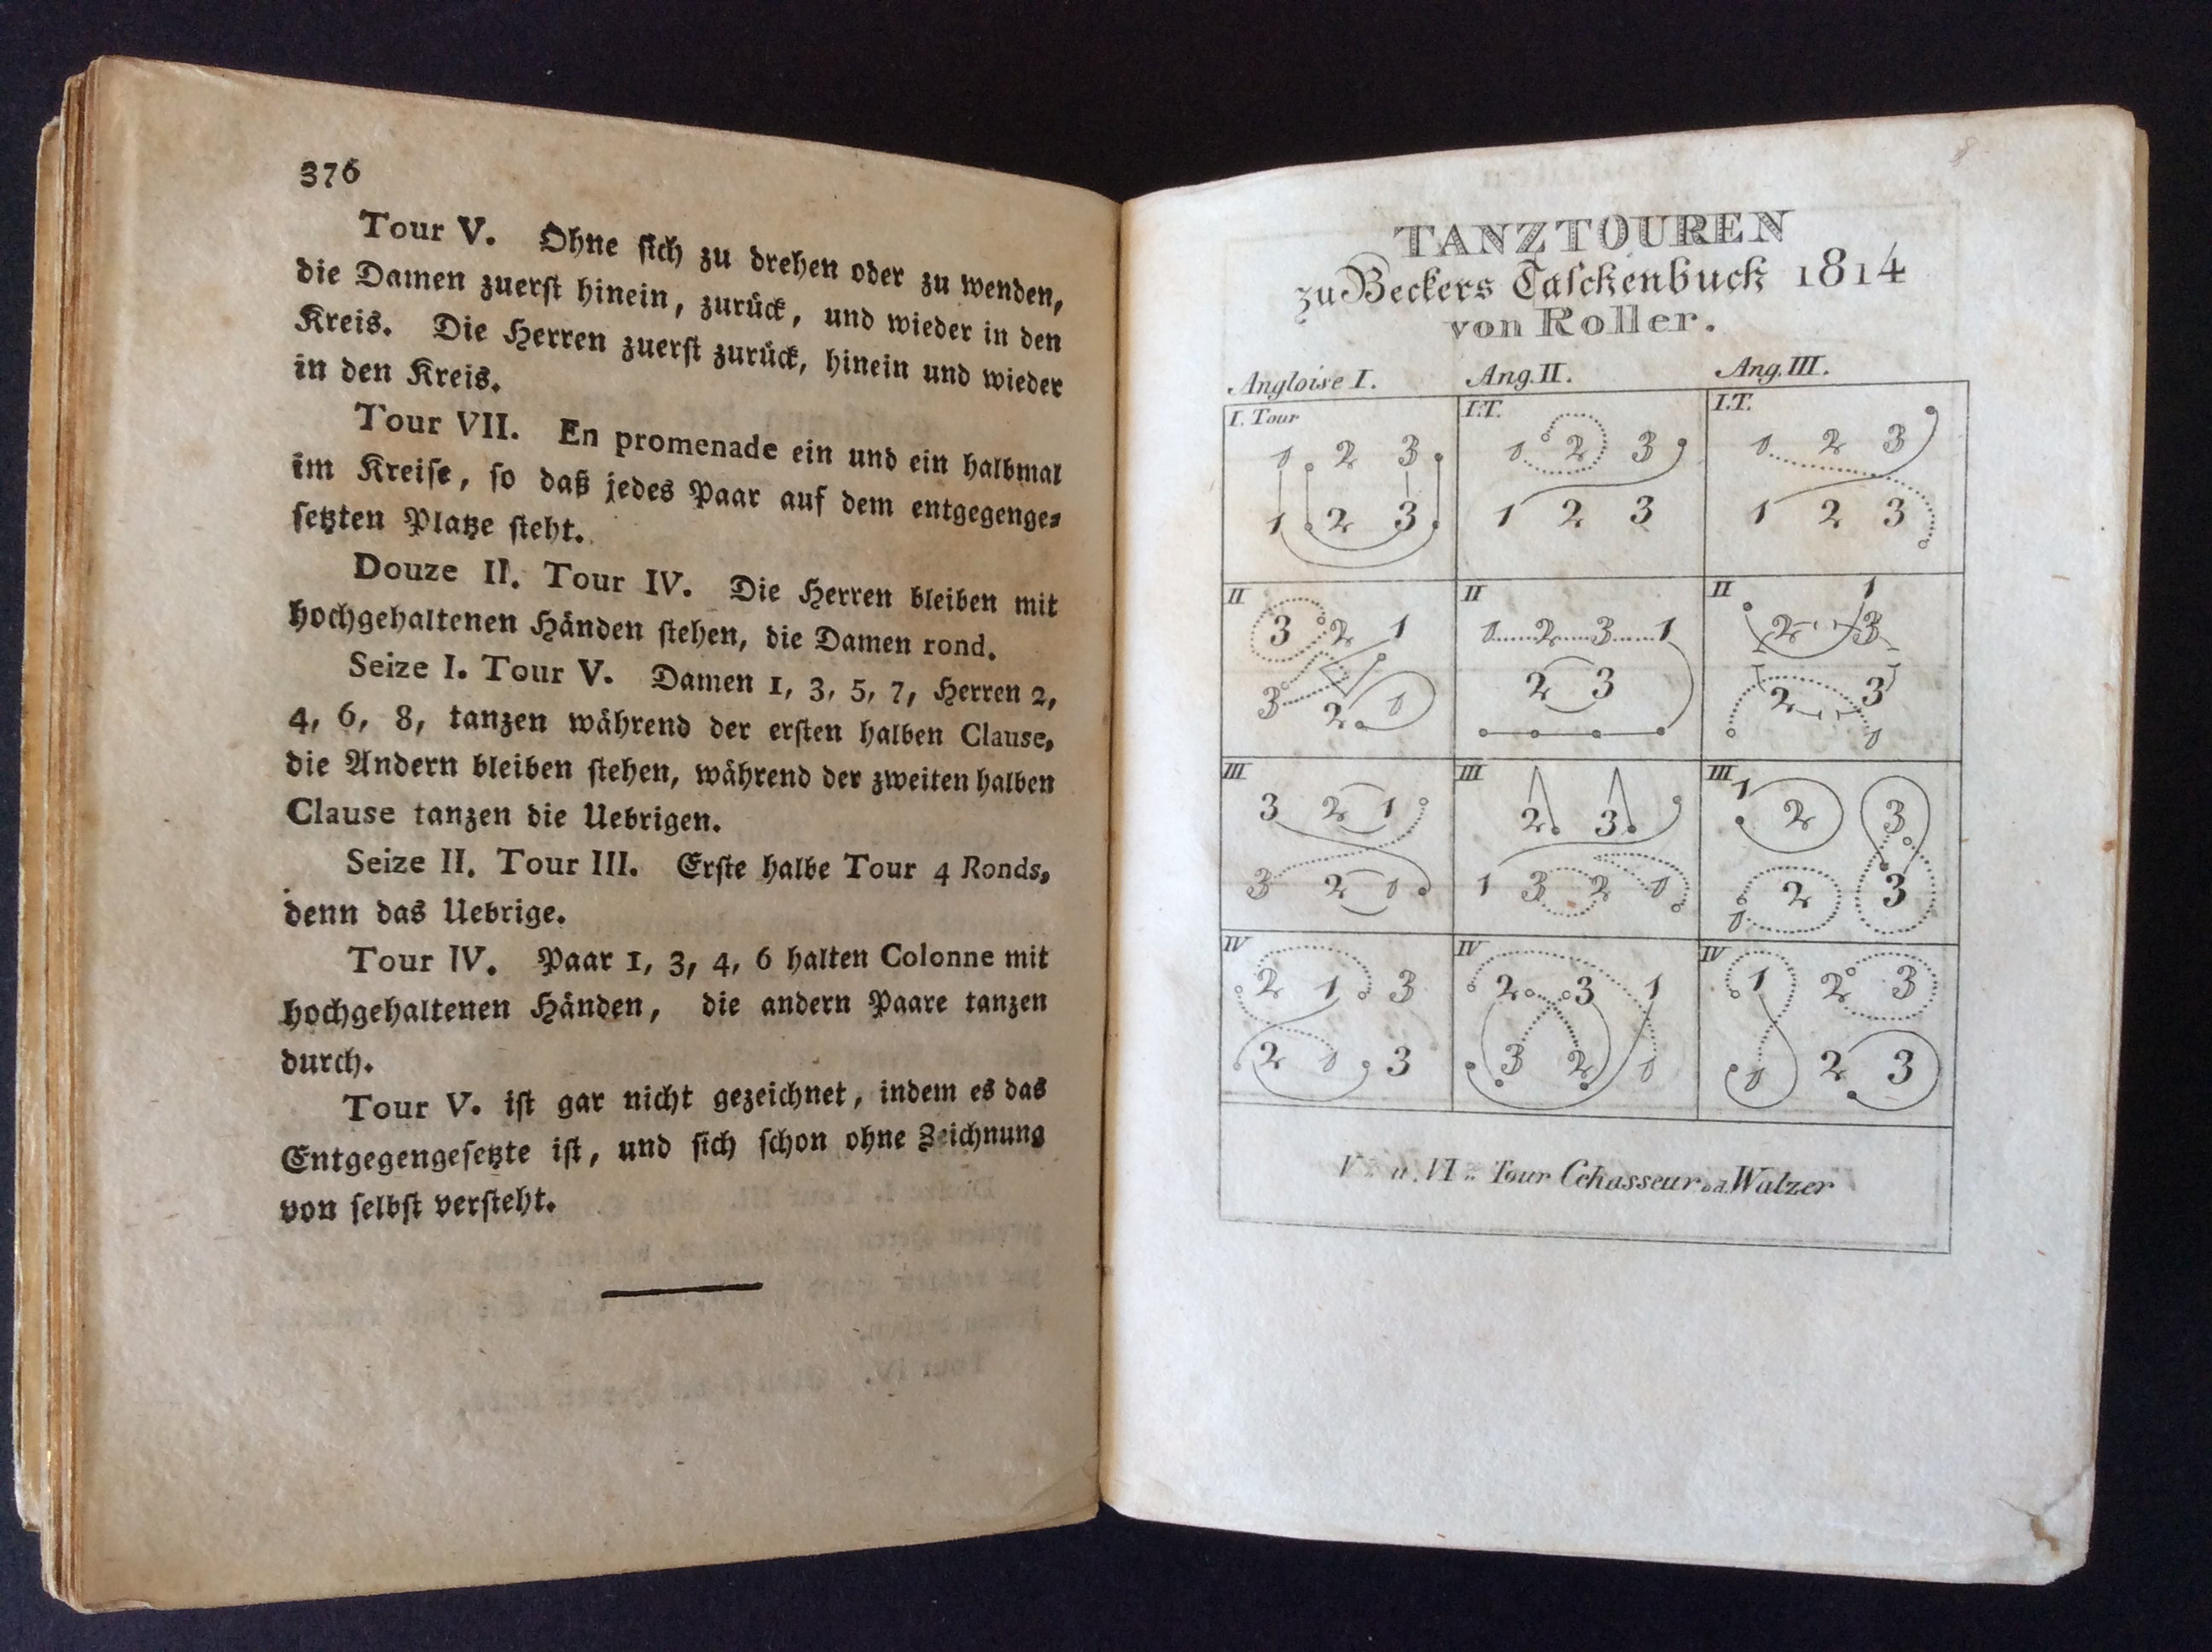 376
Tour V. Ohne ſich zu drehen oder zu wenden,
die Damen zuerſt hinein, zurück, und wieder in den
Kreis. Die Herren zuerſt zurück, hinein und wieder
in den Kreis.
Tour VII. En promenade ein und ein halbmal
im Kreiſe, ſo daß jedes Paar auf dem entgegenge⸗
ſetzten Platze ſteht.
Douze II. Tour IV. Die Herren bleiben mit
hochgehaltenen Händen ſtehen, die Damen rond.
Seize I. Tour V. Damen 1, 3, 5, 7, Herren 2,
4, 6, 8, tanzen während der erſten halben Clauſe,
die Andern bleiben ſtehen, während der zweiten halben
Clause tanzen die Uebrigen.
Seize II. Tour III. Erſte halbe Tour 4 Ronds,
denn das Uebrige.
Tour IV. Paar 1, 3, 4, 6 halten Colonne mit
hochgehaltenen Händen, die andern Paare tanzen
durch.
Tour V. iſt gar nicht gezeichnet, indem es das
Entgegengeſetzte iſt, und ſich ſchon ohne Zeichnung
von ſelbſt verſteht.
TANZTOUREN
zu Beckers Taſchenbuch 1814
von Roller.
Angloise I. Ang. II. Ang. III.
I. Tour I.T. I.T.
1 2 3 1 2 3 1 2 3
1 2 3 1 2 3 1 2 3
II II II
3 2 1 1 2 3 1 1 2 3
3 2 1 2 3 2 3 1
III III III
3 2 1 2 3 1 2 3
3 2 1 1 3 2 1 1 2 3
IV IV IV
2 1 3 2 3 1 1 2 3
2 1 3 3 2 1 1 2 3
V u. VI Tour Cchasseur od. Walzer